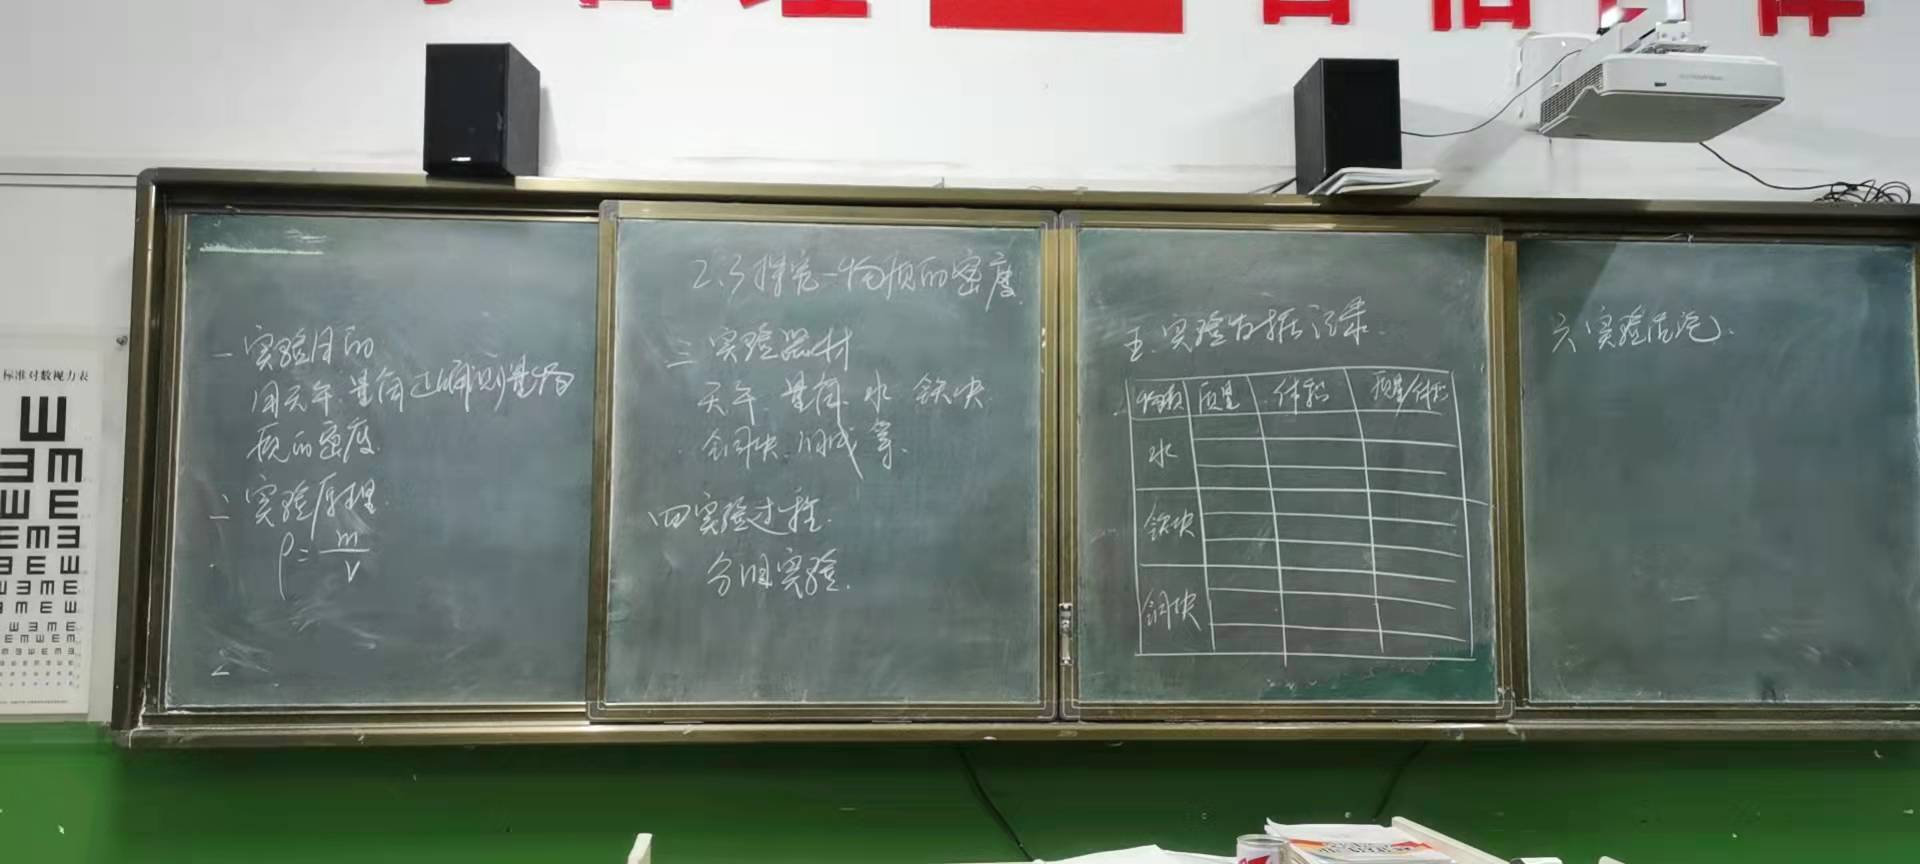 标准对数视力表
一 实验目的
用天平.量筒正确测量物
质的密度.
二 实验原理.
ρ=m/v
2.3探究-物质的密度.
三 实验器材
天平.量筒.水 铁块.
铜块.等.
四 实验过程.
分组实验.
五.实验数据记录.
物质 质量 体积 质量/体积
水
铁块
铜块
六 实验结论.